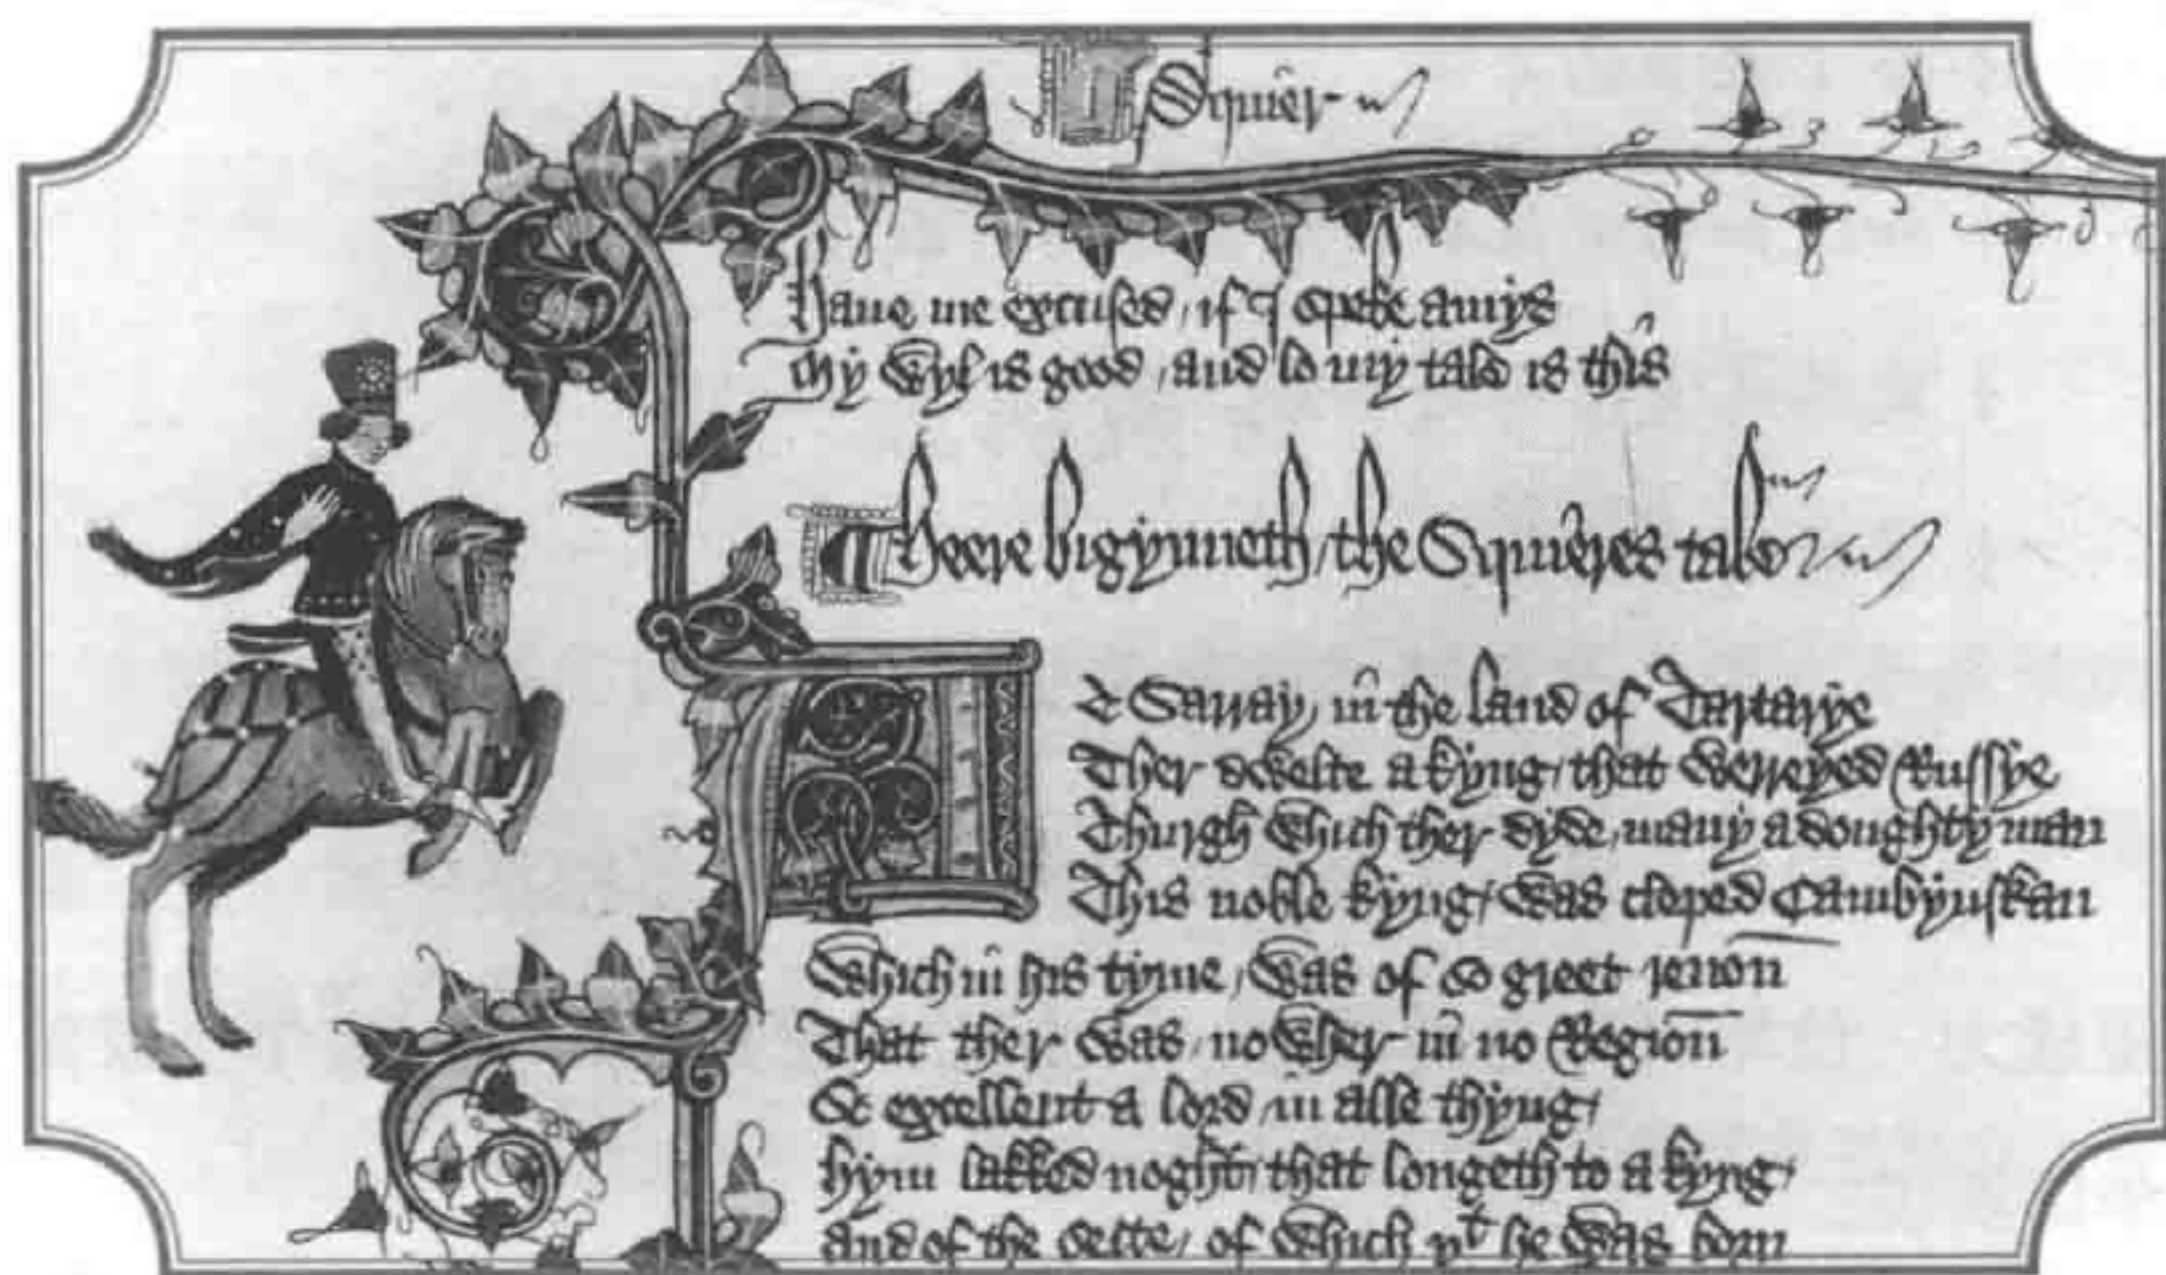 Squier
Haue me excused / if I speke amys
My wyl is good / and lo my tale is this
Heere bigynneth / the Squieres tale
At Sarray / in the land of Tartarye
Ther dwelte a kyng / that werreyed Russye
Thurgh which ther dyde / many a doughty man
This noble kyng / was cleped Cambynskan
Which in his tyme / was of so greet renon
That ther was / nowher in no Region
So excellent a lord / in alle thyng /
Hym lakked noght / that longeth to a kyng /
And of the secte / of which þt he was born